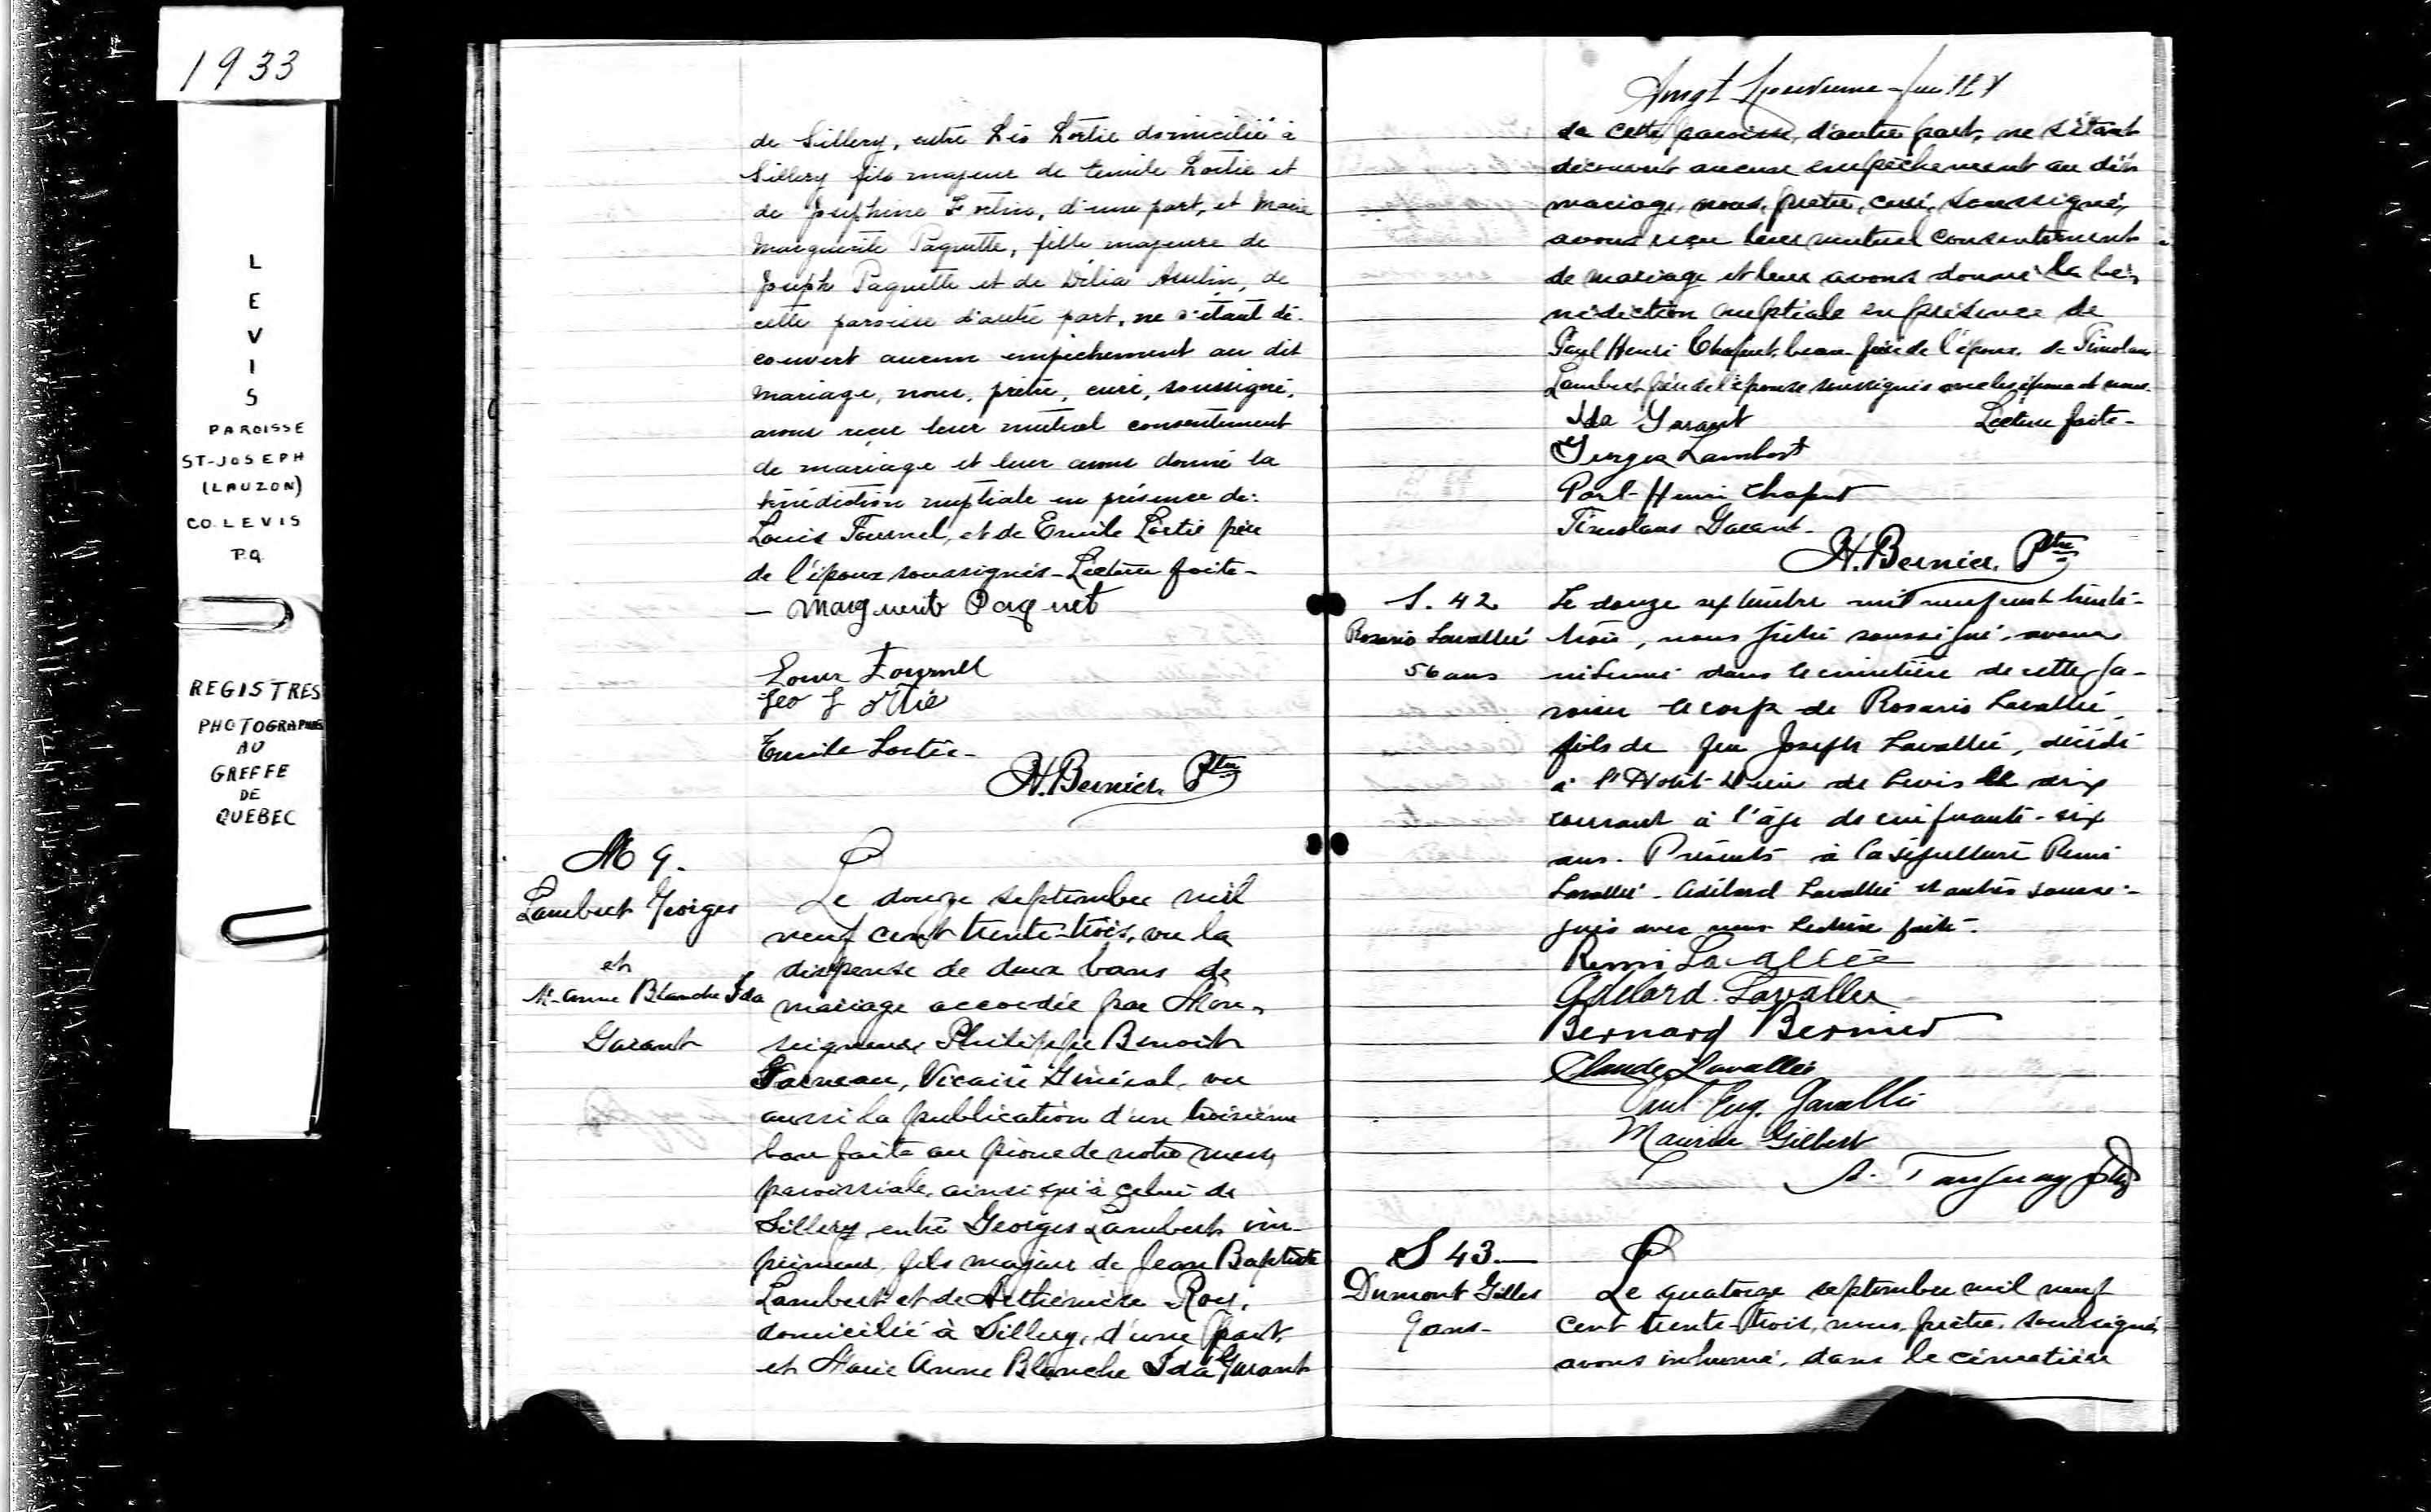 1933
L
E
V
I
S
PAROISSE
ST-JOSEPH
(LAUZON)
CO. LEVIS
P.Q.
REGISTRES
PHOTOGRAPHIÉS
AU
GREFFE
DE
QUEBEC
de Sillery, entre Léo Lortie domicilié à
Sillery fils majeur de Emile Lortie et
de Joséphine Fortin, d'une part, et Marie
Marguerite Paquette, fille majeure de
Joseph Paquette et de Délia Aubin, de
cette paroisse d'autre part, ne s'étant dé-
couvert aucun empêchement au dit
mariage, nous, prêtre, curé, soussigné,
avons reçu leur mutuel consentement
de mariage et leur avons donné la
bénédiction nuptiale en présence de:
Louis Fournel, et de Emile Lortie père
de l'époux soussignés - Lecture faite -
- Marguerite Paquet
Louis Fournel
Geo Lortie
Emile Lortie -
H. Bernier, Ptre
M 9.
Lambert Georges
et
M-Anne Blanche Ida
Garant
Le douze septembre mil
neuf cent trente-trois, vu la
dispense de deux bans de
mariage accordée par Mon-
seigneur Philippe Benoit
Garneau, Vicaire Général, vu
aussi la publication d'un troisième
ban faite au prône de notre messe
paroissiale, ainsi qu'à celui de
Sillery entre Georges Lambert im-
primeur, fils majeur de Jean Baptiste
Lambert et de Arthémise Roy,
domicilié à Sillery, d'une part,
et Marie Anne Blanche Ida Garant
Vingt juillet
de cette paroisse, d'autre part, ne s'étant
découvert aucun empêchement au dit
mariage, nous, prêtre, curé, soussigné,
avons reçu leur mutuel consentement
de mariage et leur avons donné la bé-
nédiction nuptiale en présence de
Paul Henri Chaput, beau-frère de l'époux, de Timolaus
Lambert, père de l'épouse soussignés avec les époux et nous.
Ida Garant Lecture faite -
Georges Lambert
Paul-Henri Chaput
Timolaus Garant -
H. Bernier, Ptre
S. 42
Rosario Lavallée
56 ans
Le douze septembre mil neuf cent trente-
trois, nous prêtre soussigné, avons
inhumé dans le cimetière de cette pa-
roisse le corps de Rosario Lavallée,
fils de feu Joseph Lavallée, décédé
à l'Hôtel-Dieu de Lévis le dix
courant à l'âge de cinquante-six
ans. Présents à la sépulture Rémi
Lavallée - Adélard Lavallée et autres sousse-
gnés avec nous. Lecture faite -
Remi Lavallée
Adelard Lavallée
Bernard Bernier
Claude Lavallée
Paul Eug. Lavallée
Maurice Gilbert
A. Tanguay ptre
S 43.-
Dumont Gilles
9 ans -
Le quatorze septembre mil neuf
cent trente-trois, nous, prêtre, soussigné,
avons inhumé, dans le cimetière